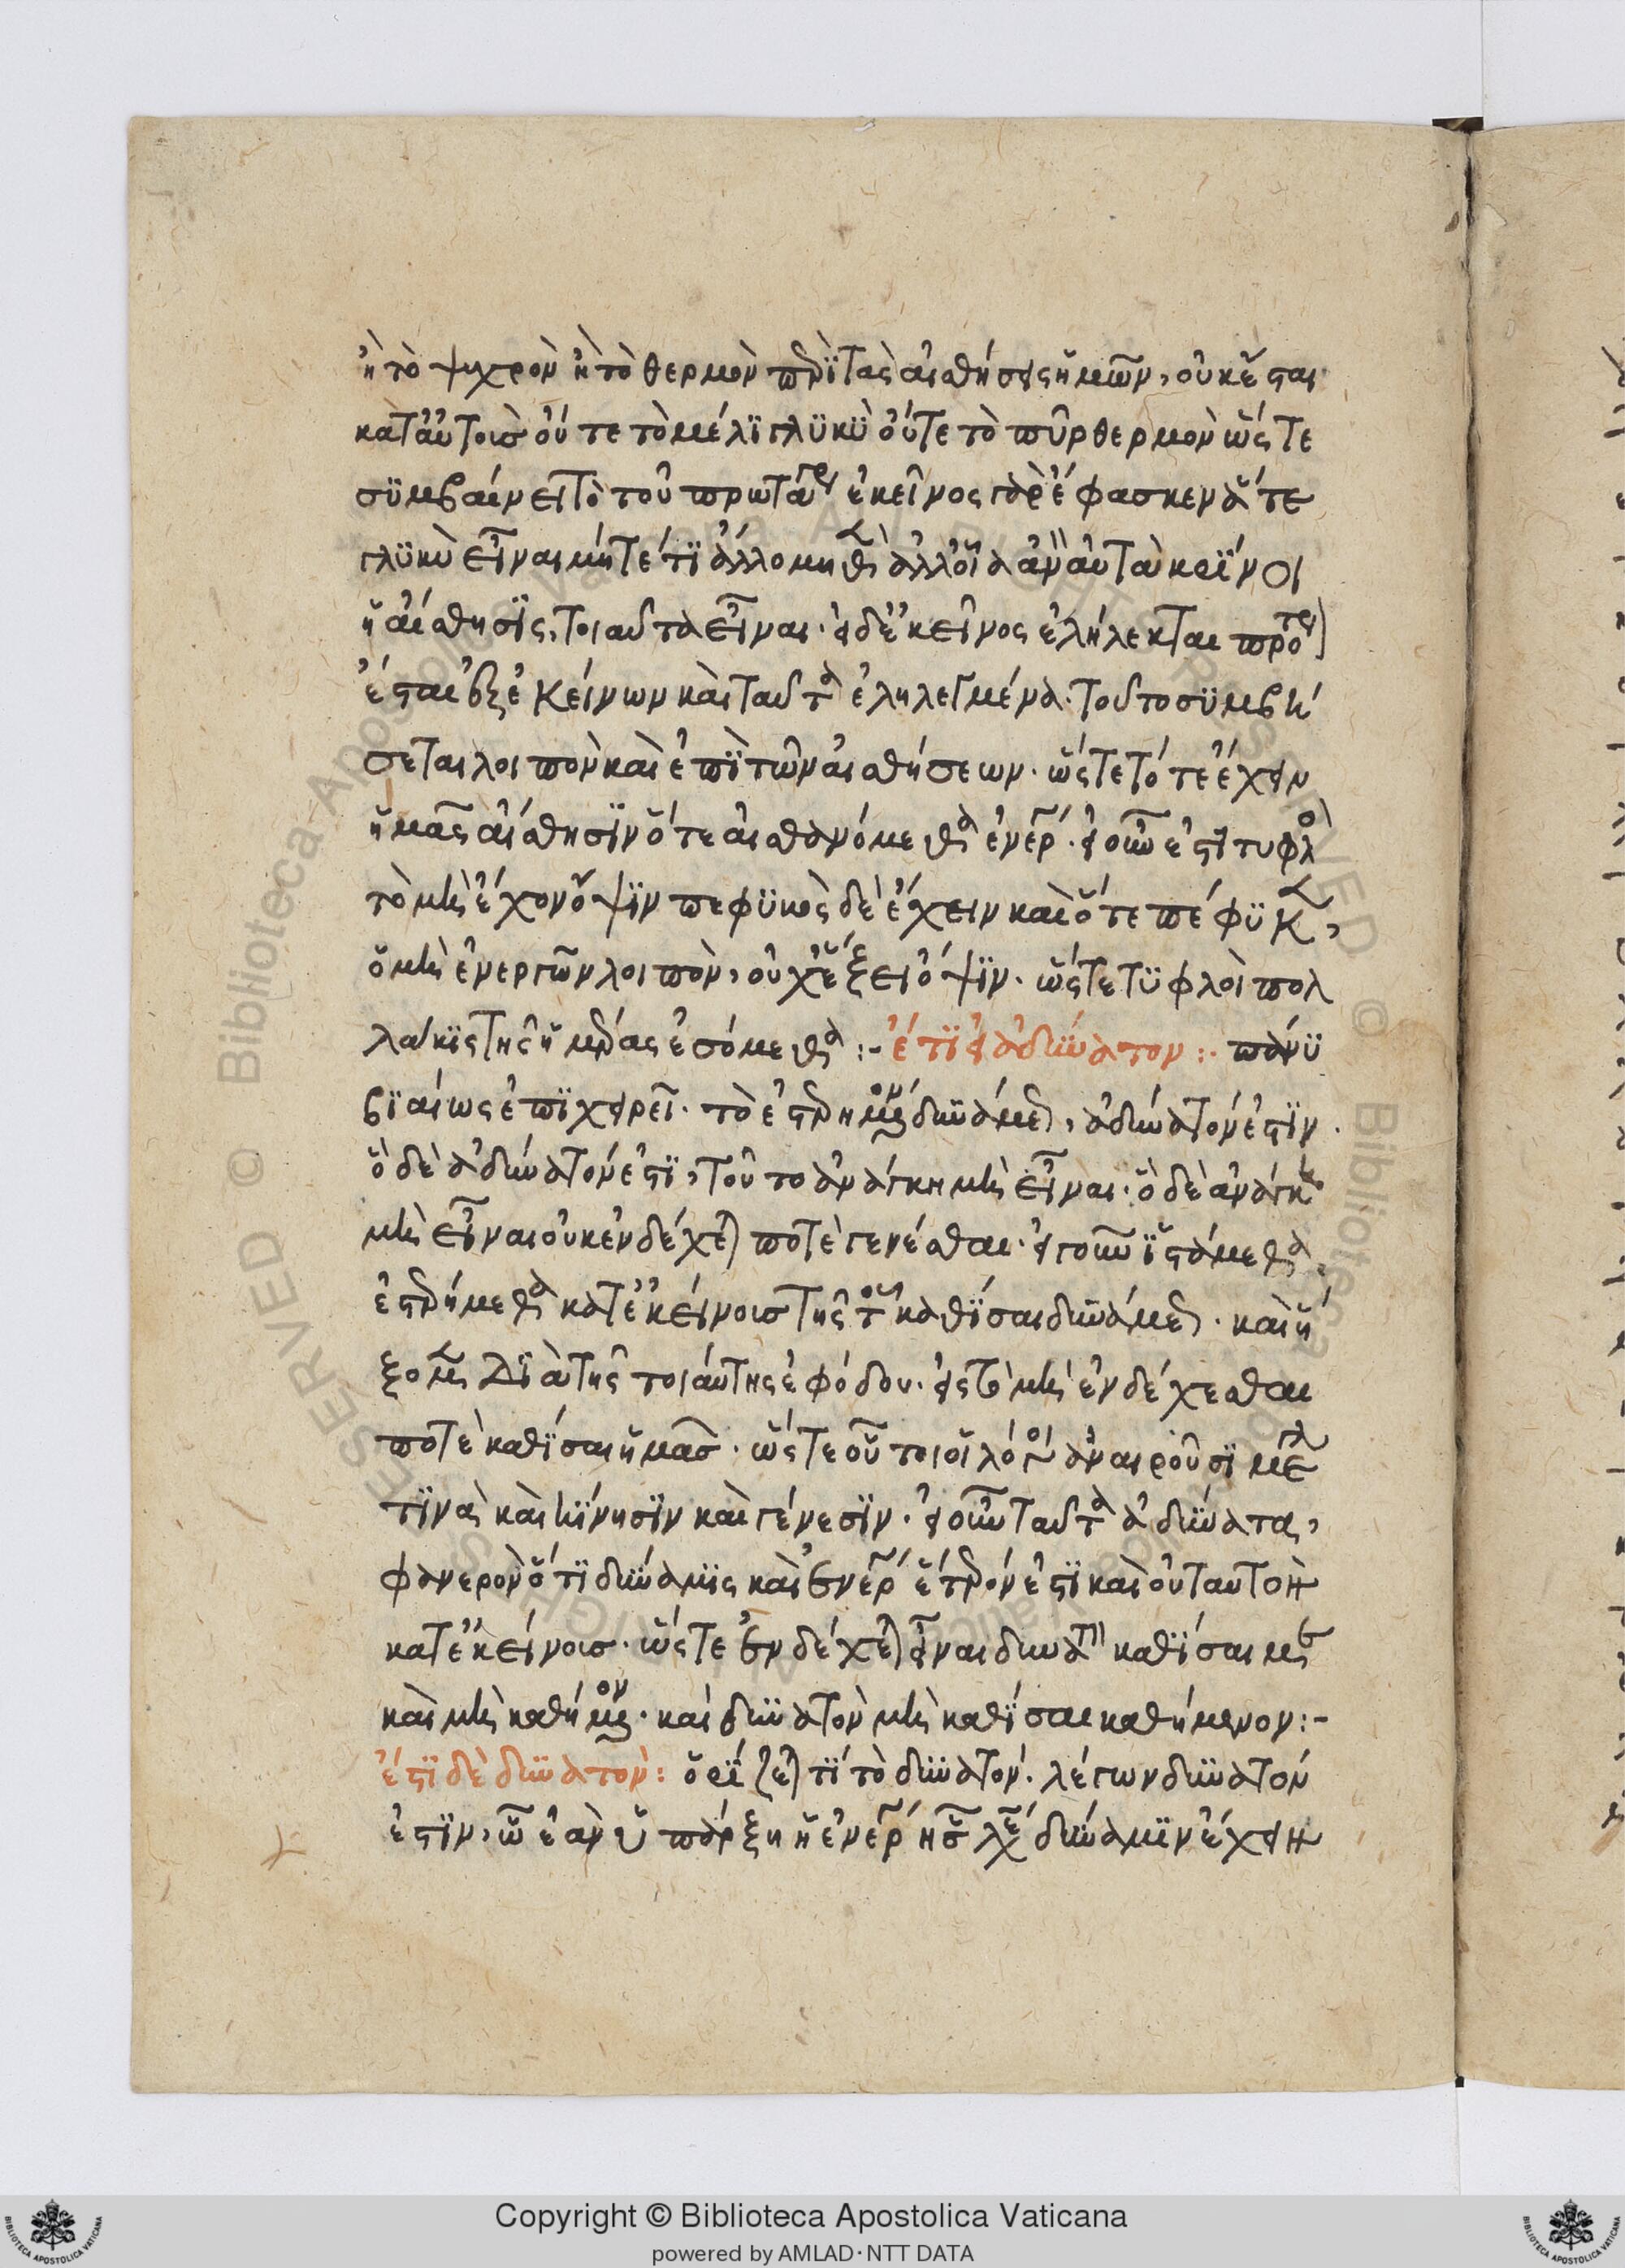 ἢ τὸ ψυχρὸν ἢ τὸ θερμὸν περὶ τὰς αἰσθήσεις ἡμῶν, οὐκ ἔσται
κατ' αὐτοὺς οὔτε τὸ μέλι γλυκὺ οὔτε τὸ πῦρ θερμὸν ὥστε
συμβαίνει τὸ τοῦ πρωταγόρου ἐκεῖνος γὰρ ἔφασκεν μήτε
γλυκὺ εἶναι μήτέ τι ἄλλο μηδὲν ἀλλ' οἷα ἂν αὐτὰ κρίνοι
ἡ αἴσθησις, τοιαῦτα εἶναι. εἰ δὲ κεῖνος ἐλήλεκται πρότερον
ἔσται ἐξ ἐκείνων καὶ ταῦτα ἐληλεγμένα. τοῦτο συμβή
σεται λοιπὸν καὶ ἐπὶ τῶν αἰσθήσεων. ὥστε τότε ἔχειν
ἡμᾶς αἴσθησιν ὅτε αἰσθανόμεθα ἐνεργείᾳ. εἰ οὖν ἐστὶ τυφλὸν
τὸ μὴ ἔχον ὄψιν πεφυκὸς δὲ ἔχειν καὶ ὅτε πέφυκεν,
ὁ μὴ ἐνεργῶν λοιπὸν, οὐχ ἕξει ὄψιν. ὥστε τυφλοὶ πολ
λάκις τῆς ἡμέρας ἐσόμεθα :- ἔτι εἰ ἀδύνατον :. πάνυ
βιαίως ἐπιχειρεῖ. τὸ ἐστερημένον δυνάμεως, ἀδύνατόν ἐστιν.
ὃ δὲ ἀδύνατόν ἐστι, τοῦτο ἀνάγκη μὴ εἶναι. ὃ δὲ ἀνάγκη
μὴ εἶναι οὐκ ἐνδέχεται ποτὲ γενέσθαι. εἰ γοῦν ἱστάμεθα
ἐστερήμεθα κατ' ἐκείνους τῆς τοῦ καθίσαι δυνάμεως. καὶ ἥ
ξομεν διὰ τῆς τοιαύτης ἐφόδου. εἰς τὸ μὴ ἐνδέχεσθαι
ποτὲ καθίσαι ἡμᾶς. ὥστε οὗτοι οἱ λόγοι ἀναιροῦσι μεγάλην
τινα καὶ κίνησιν καὶ γένεσιν. εἰ οὖν ταῦτα ἀδύνατα,
φανερὸν ὅτι δύναμις καὶ ἐνέργεια ἕτερόν ἐστι καὶ οὐ ταυτὸν
κατ' ἐκείνους. ὥστε ἐνδέχεται εἶναι δυνατὴν καθίσαι μὲν
καὶ μὴ καθήμενον. καὶ δυνατὸν μὴ καθίσαι καθήμενον :-
ἔστι δὲ δυνατὸν: ὁρίζεται τί τὸ δυνατόν. λέγων δυνατόν
ἐστιν, ᾧ ἐὰν ὑπάρξῃ ἡ ἐνέργεια ἧς λέγεται δύναμιν ἔχειν